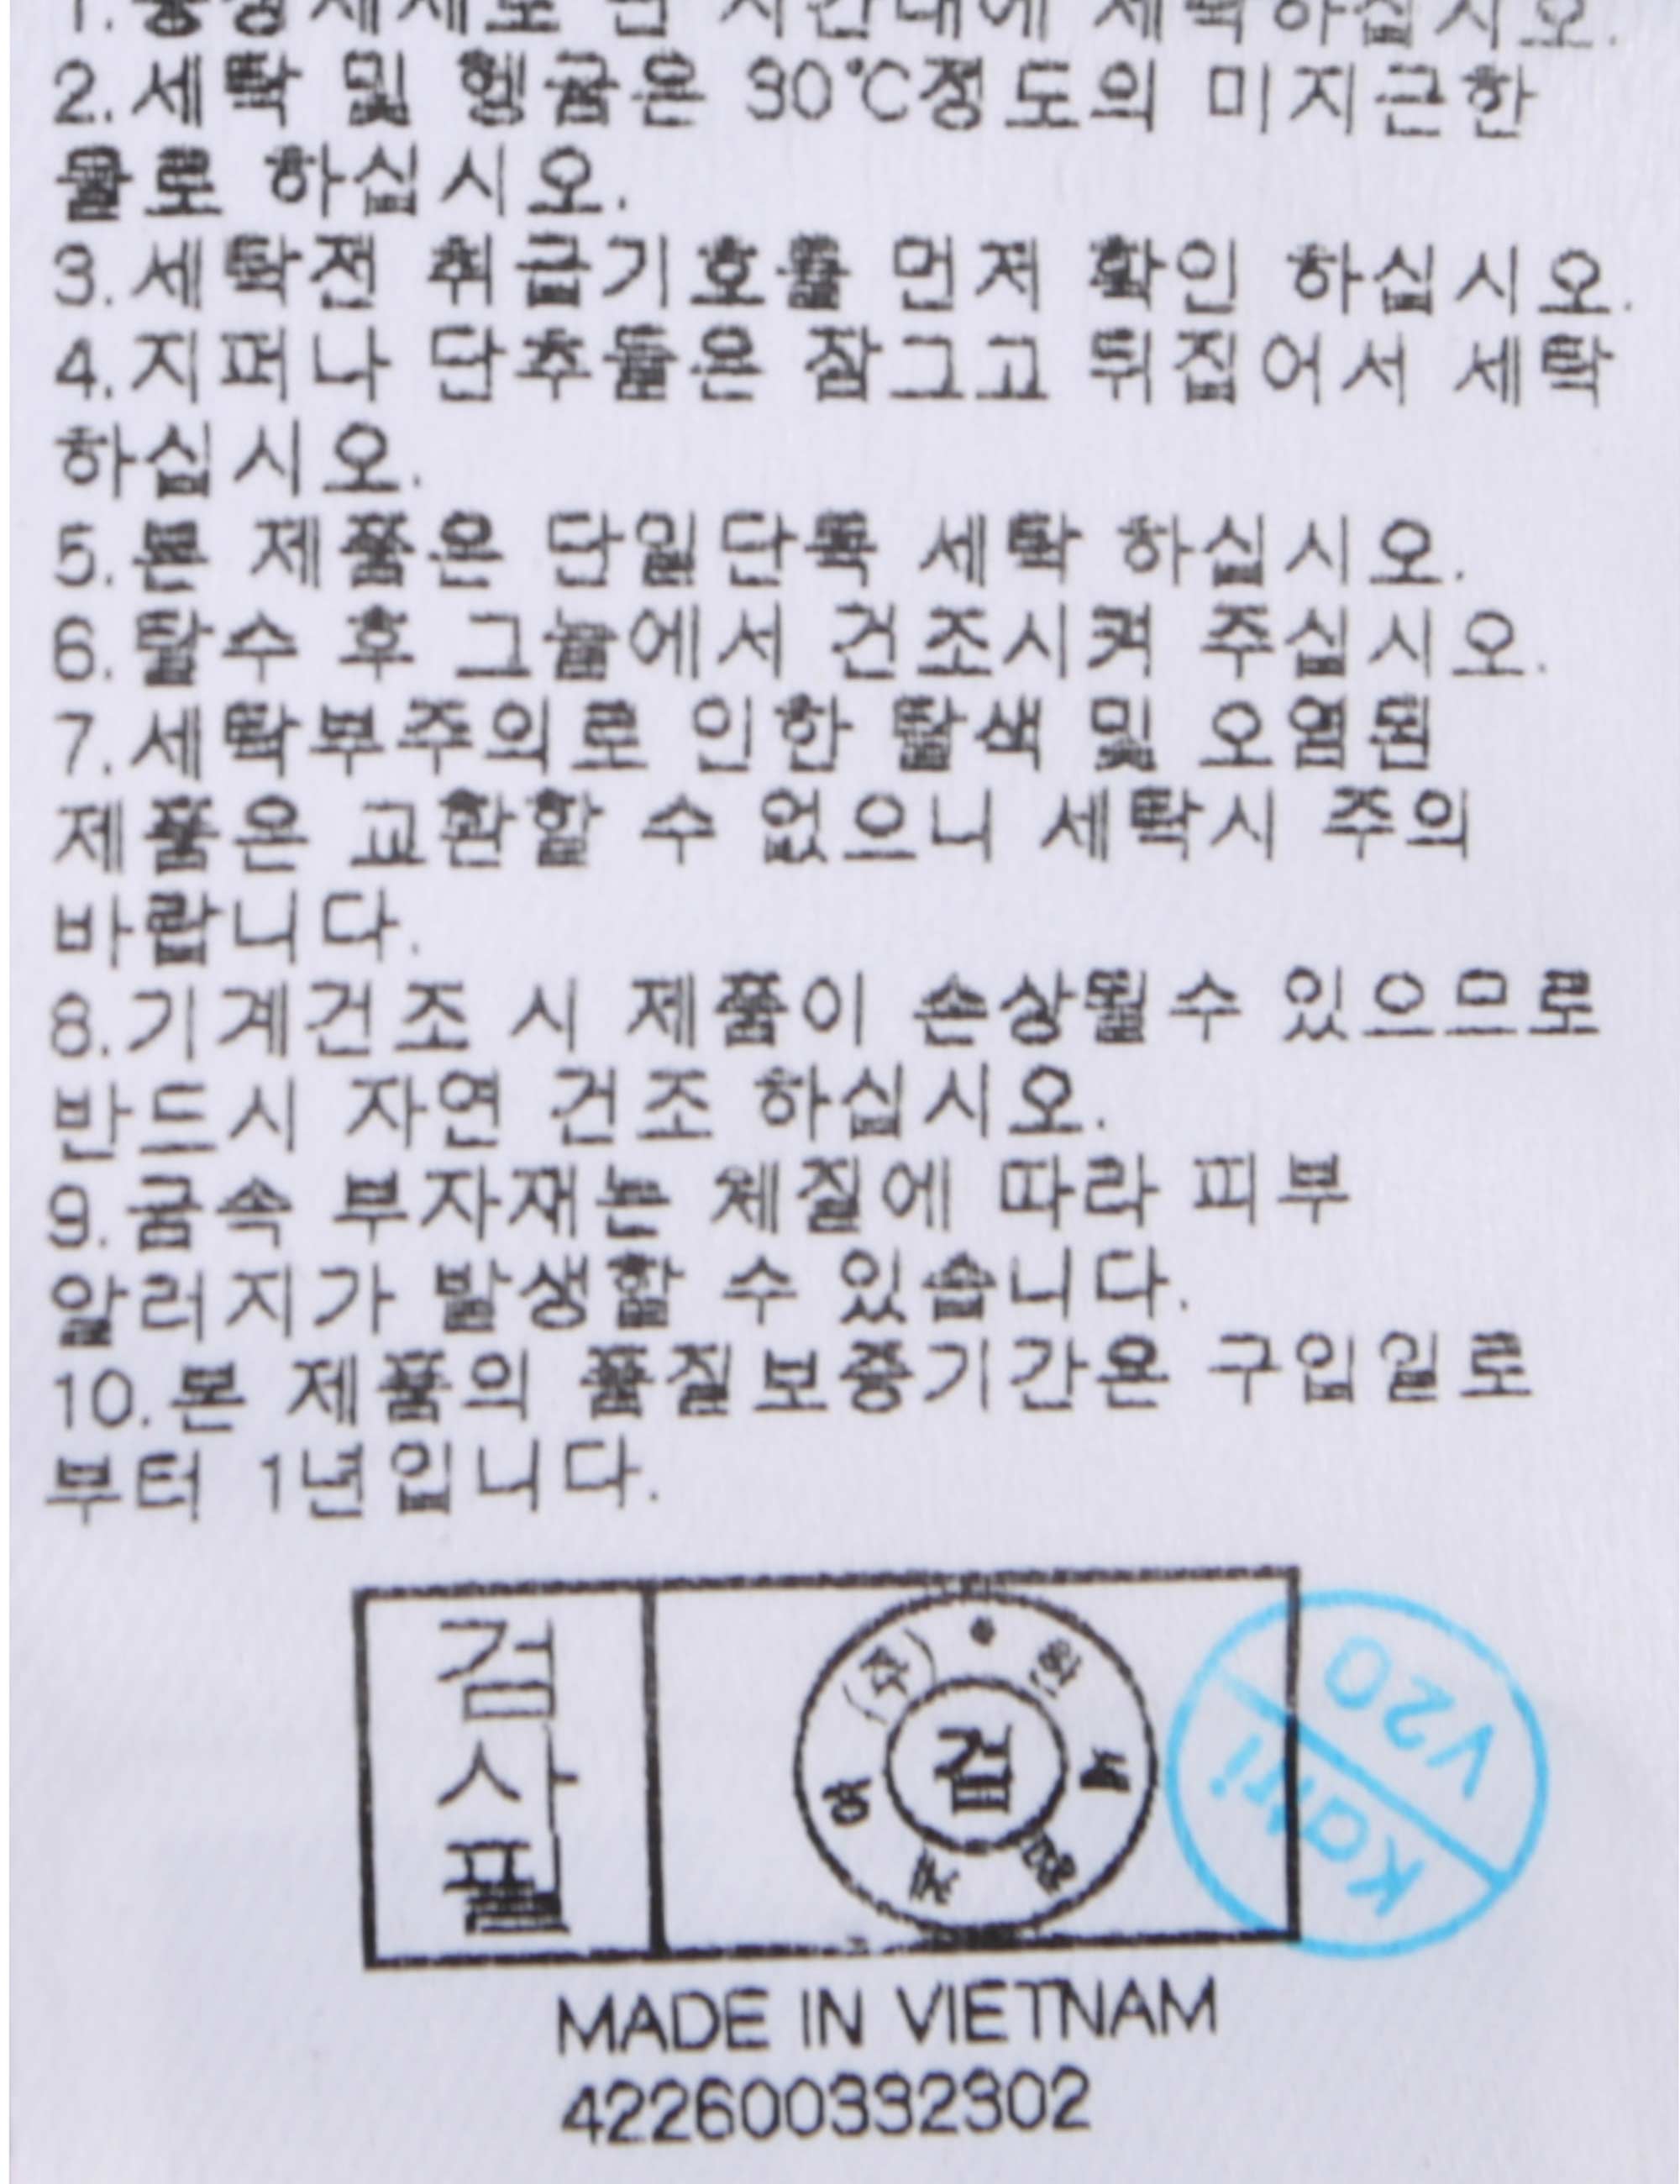 1.중성세제로 단 시간내에 세탁하십시오.
2.세탁 및 헹굼은 30℃정도의 미지근한
물로 하십시오.
3.세탁전 취급기호를 먼저 확인 하십시오.
4.지퍼나 단추들은 잠그고 뒤집어서 세탁
하십시오.
5.본 제품은 단일단독 세탁 하십시오.
6.탈수 후 그늘에서 건조시켜 주십시오.
7.세탁부주의로 인한 탈색 및 오염된
제품은 교환할 수 없으니 세탁시 주의
바랍니다.
8.기계건조 시 제품이 손상될수 있으므로
반드시 자연 건조 하십시오.
9.금속 부자재는 체질에 따라 피부
알러지가 발생할 수 있습니다.
10.본 제품의 품질보증기간은 구입일로
부터 1년입니다.
검사필
(주)
검
Katri
V20
MADE IN VIETNAM
422600332302